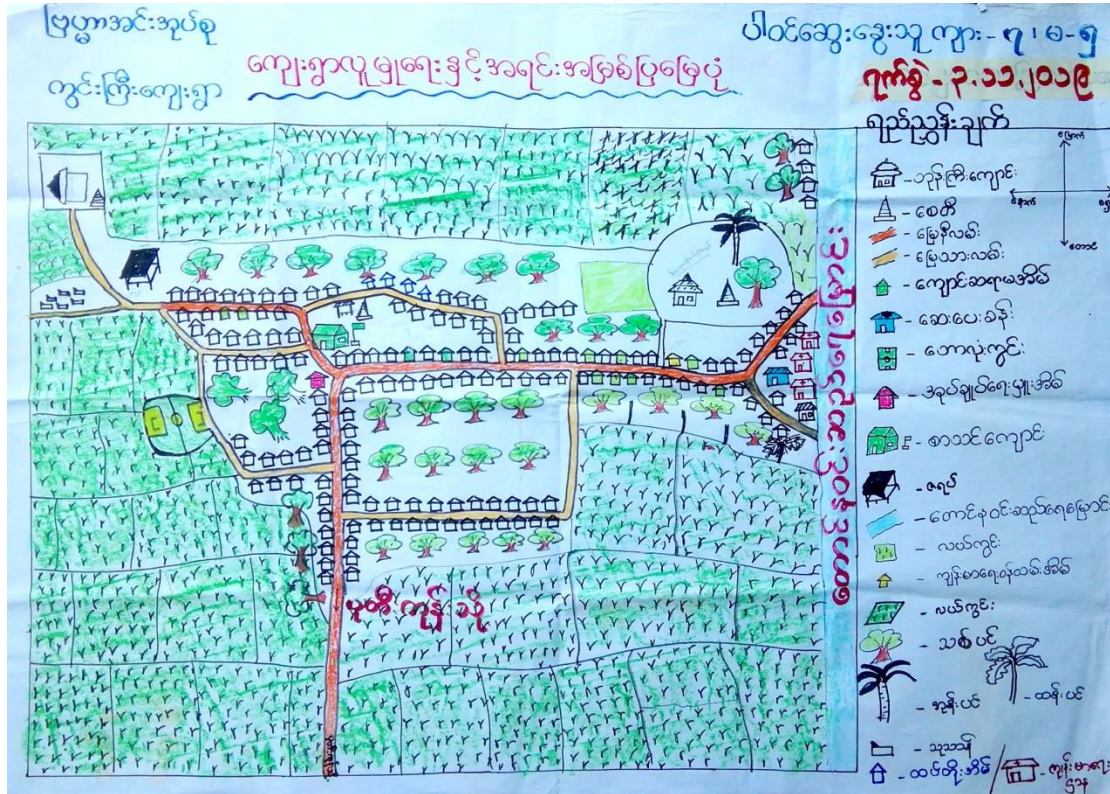 ဗြဟ္မာအင်းအုပ်စု
ကွင်းကြီးကျေးရွာ
ကျေးရွာလူမှုရေးနှင့်အရင်းအမြစ်ပြမြေပုံ
ပါဝင်ဆွေးနွေးသူ ကျား-၇၊ မ-၅
ရက်စွဲ - ၃.၁၁.၂၀၁၉
ရည်ညွှန်းချက်
မြောက်
တောင်
ဘုန်းကြီးကျောင်း
- စေတီ
- မြေနီလမ်း
- မြေသားလမ်း
- ကျောင်ဆရာမအိမ်
- ဆေးပေးခန်း
- ဘောလုံးကွင်း
- အုပ်ချုပ်ရေးမှူးအိမ်
- စာသင်ကျောင်း
- ဇရပ်
- တောင်နဝင်းဆည်ရေမြောင်း
- လယ်ကွင်း
- ကျန်းမာရေးဝန်ထမ်းအိမ်
- လယ်ကွင်း
- သစ်ပင်
- အုန်းပင်
- ထန်းပင်
- သုသာန်
- ထပ်တိုးအိမ်
- ကျန်းမာရေးဌာန
ပုတီးကုန်းသို့